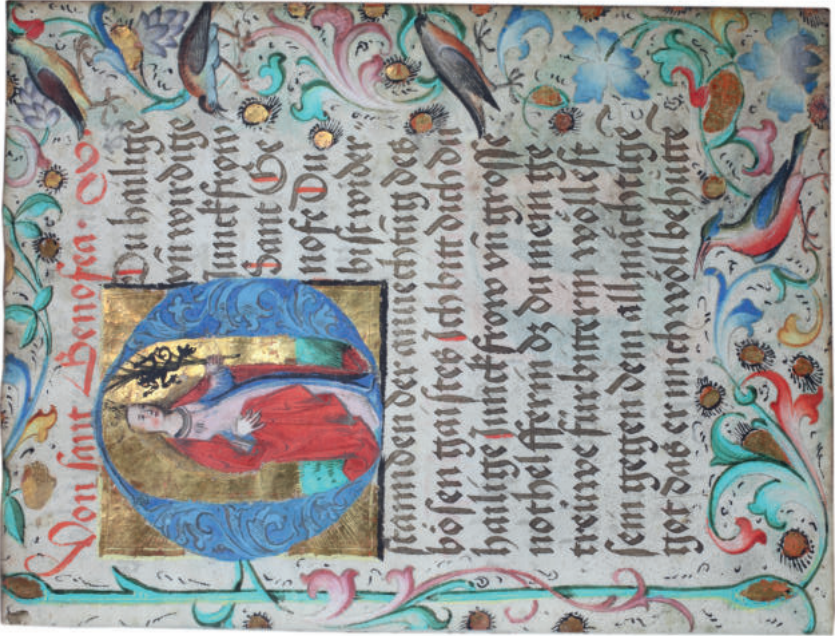 Von sant Genofea.
O Du hailige
vn̄ wirdige
Junckfrow
Sant Ge
nofe Du
bist wider
stannden der annechtūg des
bösen gaistes Ich bitt dich du
hailige Junckfrow vn̄ grosse
nothelfferin dz du mein ge
treüwe fürbitterin wöllest
sein gegen dem allmächtigē
got das er mich wöll behüttē